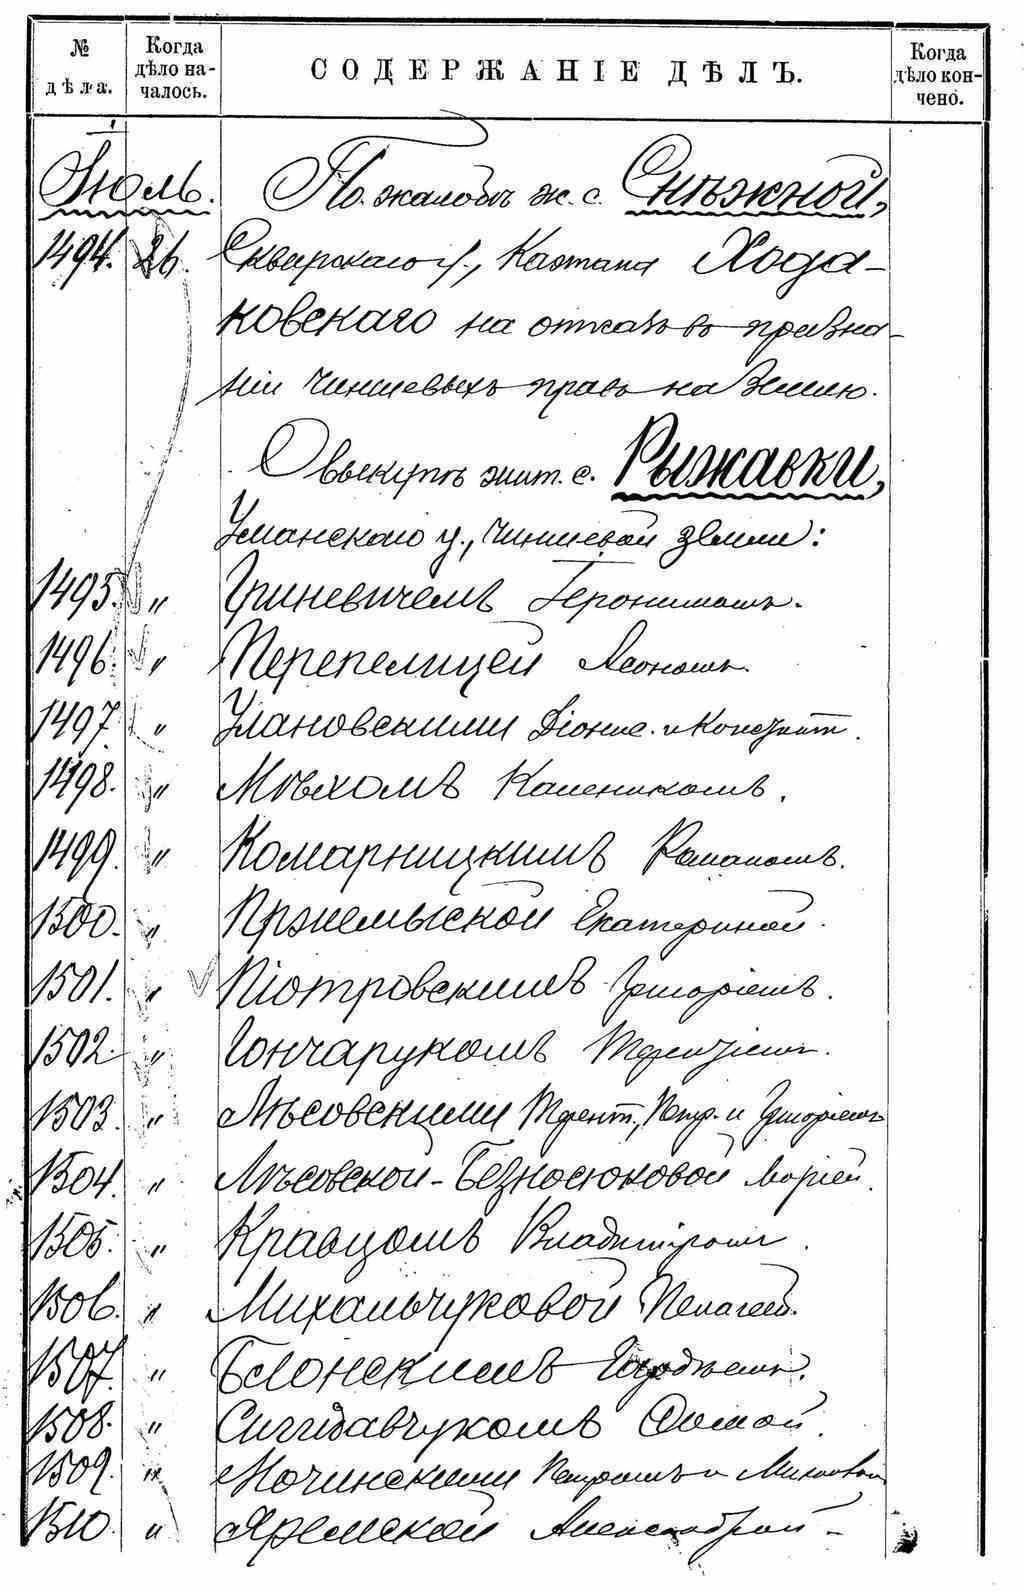 № дѣла.
Когда дѣло началось.
СОДЕРЖАНІЕ ДѢЛЪ.
Когда дѣло кончено.
Іюль.
По жалобѣ ж. с. Снѣжной,
1494. 26. Сквирскаго у., Каэтана Хода-
ковскаго на отказъ въ призна-
ніи чиншевыхъ правъ на землю.
О выкупѣ жит. с. Рыжавки,
Уманскаго у., чиншевой земли:
1495. " Гриневичемъ Геронимомъ.
1496. " Перепелицей
1497. " Улановскими Діонис. и Констант.
1498. " Каленикомъ.
1499. " Комарницкимъ Романомъ.
1500. " Пржемыской Екатериной.
1501. " Піотровскимъ Григоріемъ.
1502. " Гончарукомъ Терентіемъ.
1503. " Лѣсовскими Терент., Петр. и Григоріемъ
1504. " Лѣсовской-Безносюковой Маріей.
1505. " Кравцомъ Владиміромъ.
1506. " Михальчуковой Пелагеей.
1507. " Блонскимъ
1508. " Фомой.
1509. " Мочинскими Петромъ и
1510. " Яремской Александрой -